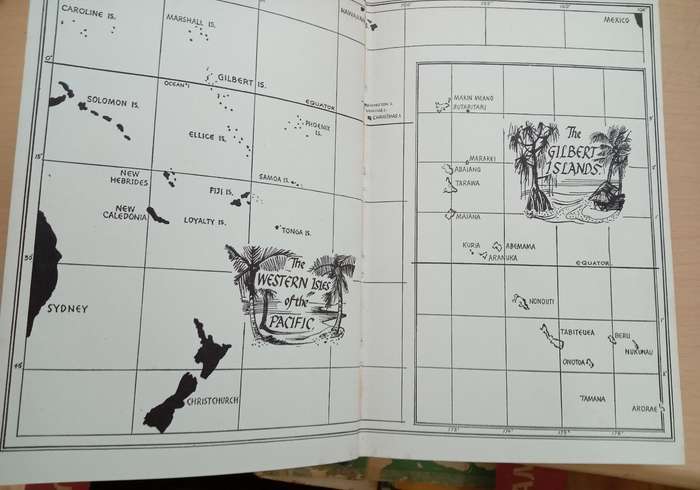 CAROLINE IS.
MARSHALL IS.
MEXICO
0°
GILBERT IS.
OCEAN I
EQUATOR
SOLOMON IS.
ELLICE IS.
PHOENIX
IS.
CHRISTMAS I.
15°
NEW
HEBRIDES
FIJI IS.
SAMOA IS.
NEW
CALEDONIA
LOYALTY IS.
TONGA IS.
The
WESTERN ISLES
of the
PACIFIC
SYDNEY
45°
CHRISTCHURCH
MAKIN MEANG
BUTARITARI
The
GILBERT
ISLANDS.
MARAKEI
ABAIANG
TARAWA
MAIANA
KURIA
ABEMAMA
ARANUKA
EQUATOR
NONOUTI
TABITEUEA
BERU
NUKUNAU
ONOTOA
TAMANA
ARORAE
173°
174°
175°
176°